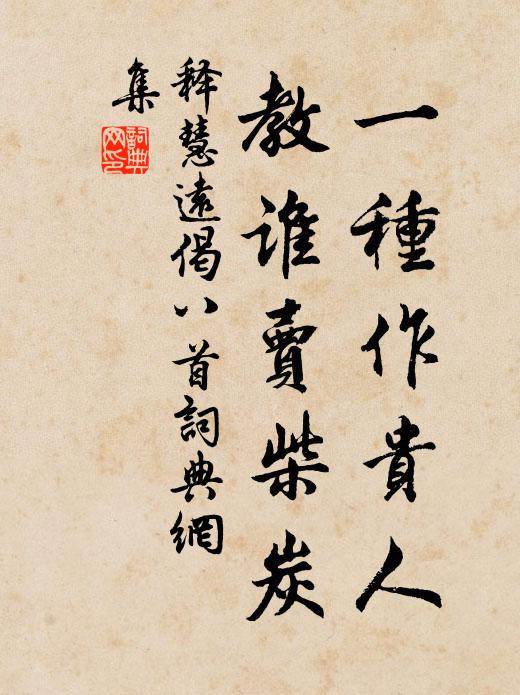 一種作貴人
教誰賣柴炭
釋慧遠偈八首詞典網
集
詞典
网印